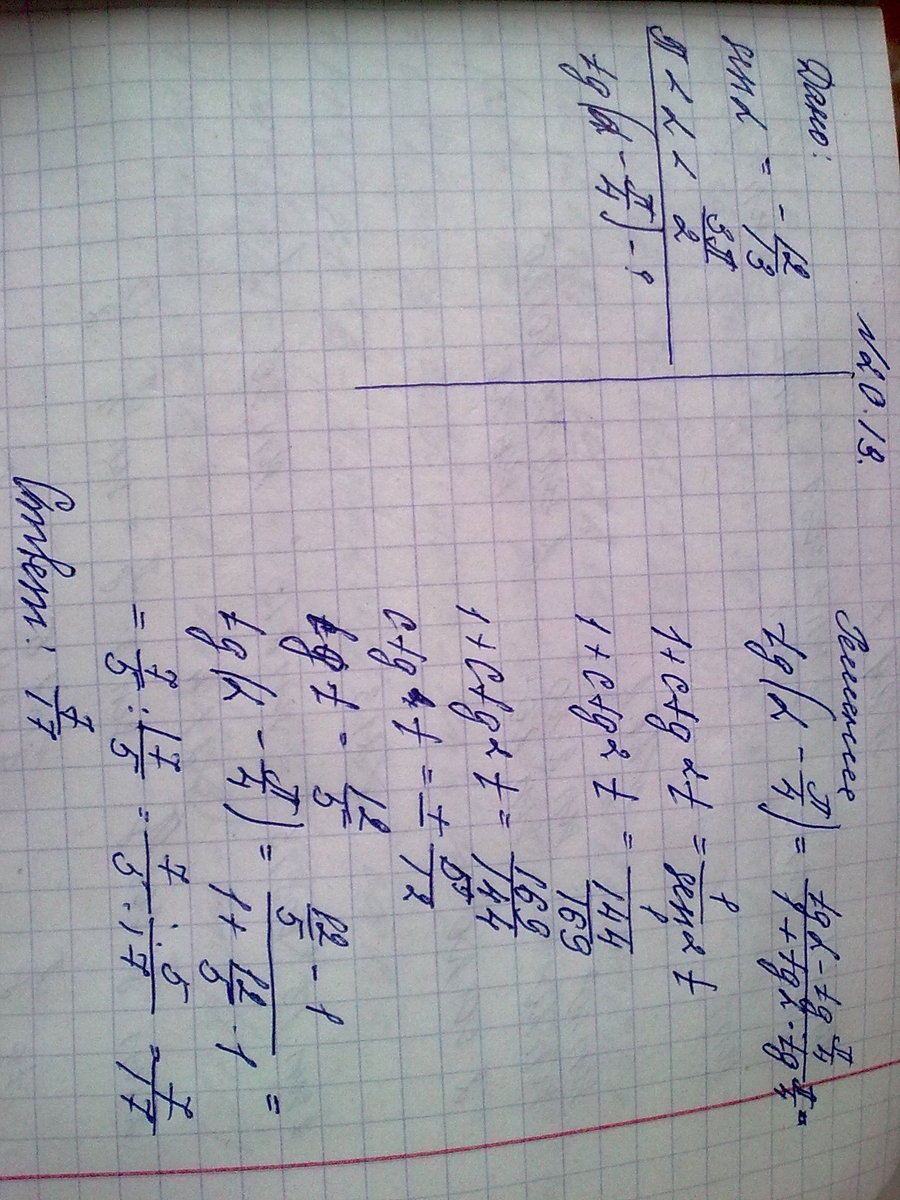 №20.13.
Дано:
sin α = -12/13
π < α < 3π/2
tg(α - π/4) - ?
Решение
tg(α - π/4) = (tg α - tg π/4)/(1 + tg α · tg π/4) =
1 + ctg²t = 1/sin²t
1 + ctg²t = 144/169
1 + ctg²t = 169/144
ctg t = ± 5/12
tg t = 12/5
tg(α - π/4) = (12/5 - 1)/(1 + 12/5 · 1) =
= 7/5 : 17/5 = (7 · 5)/(5 · 17) = 7/17
Ответ: 7/17